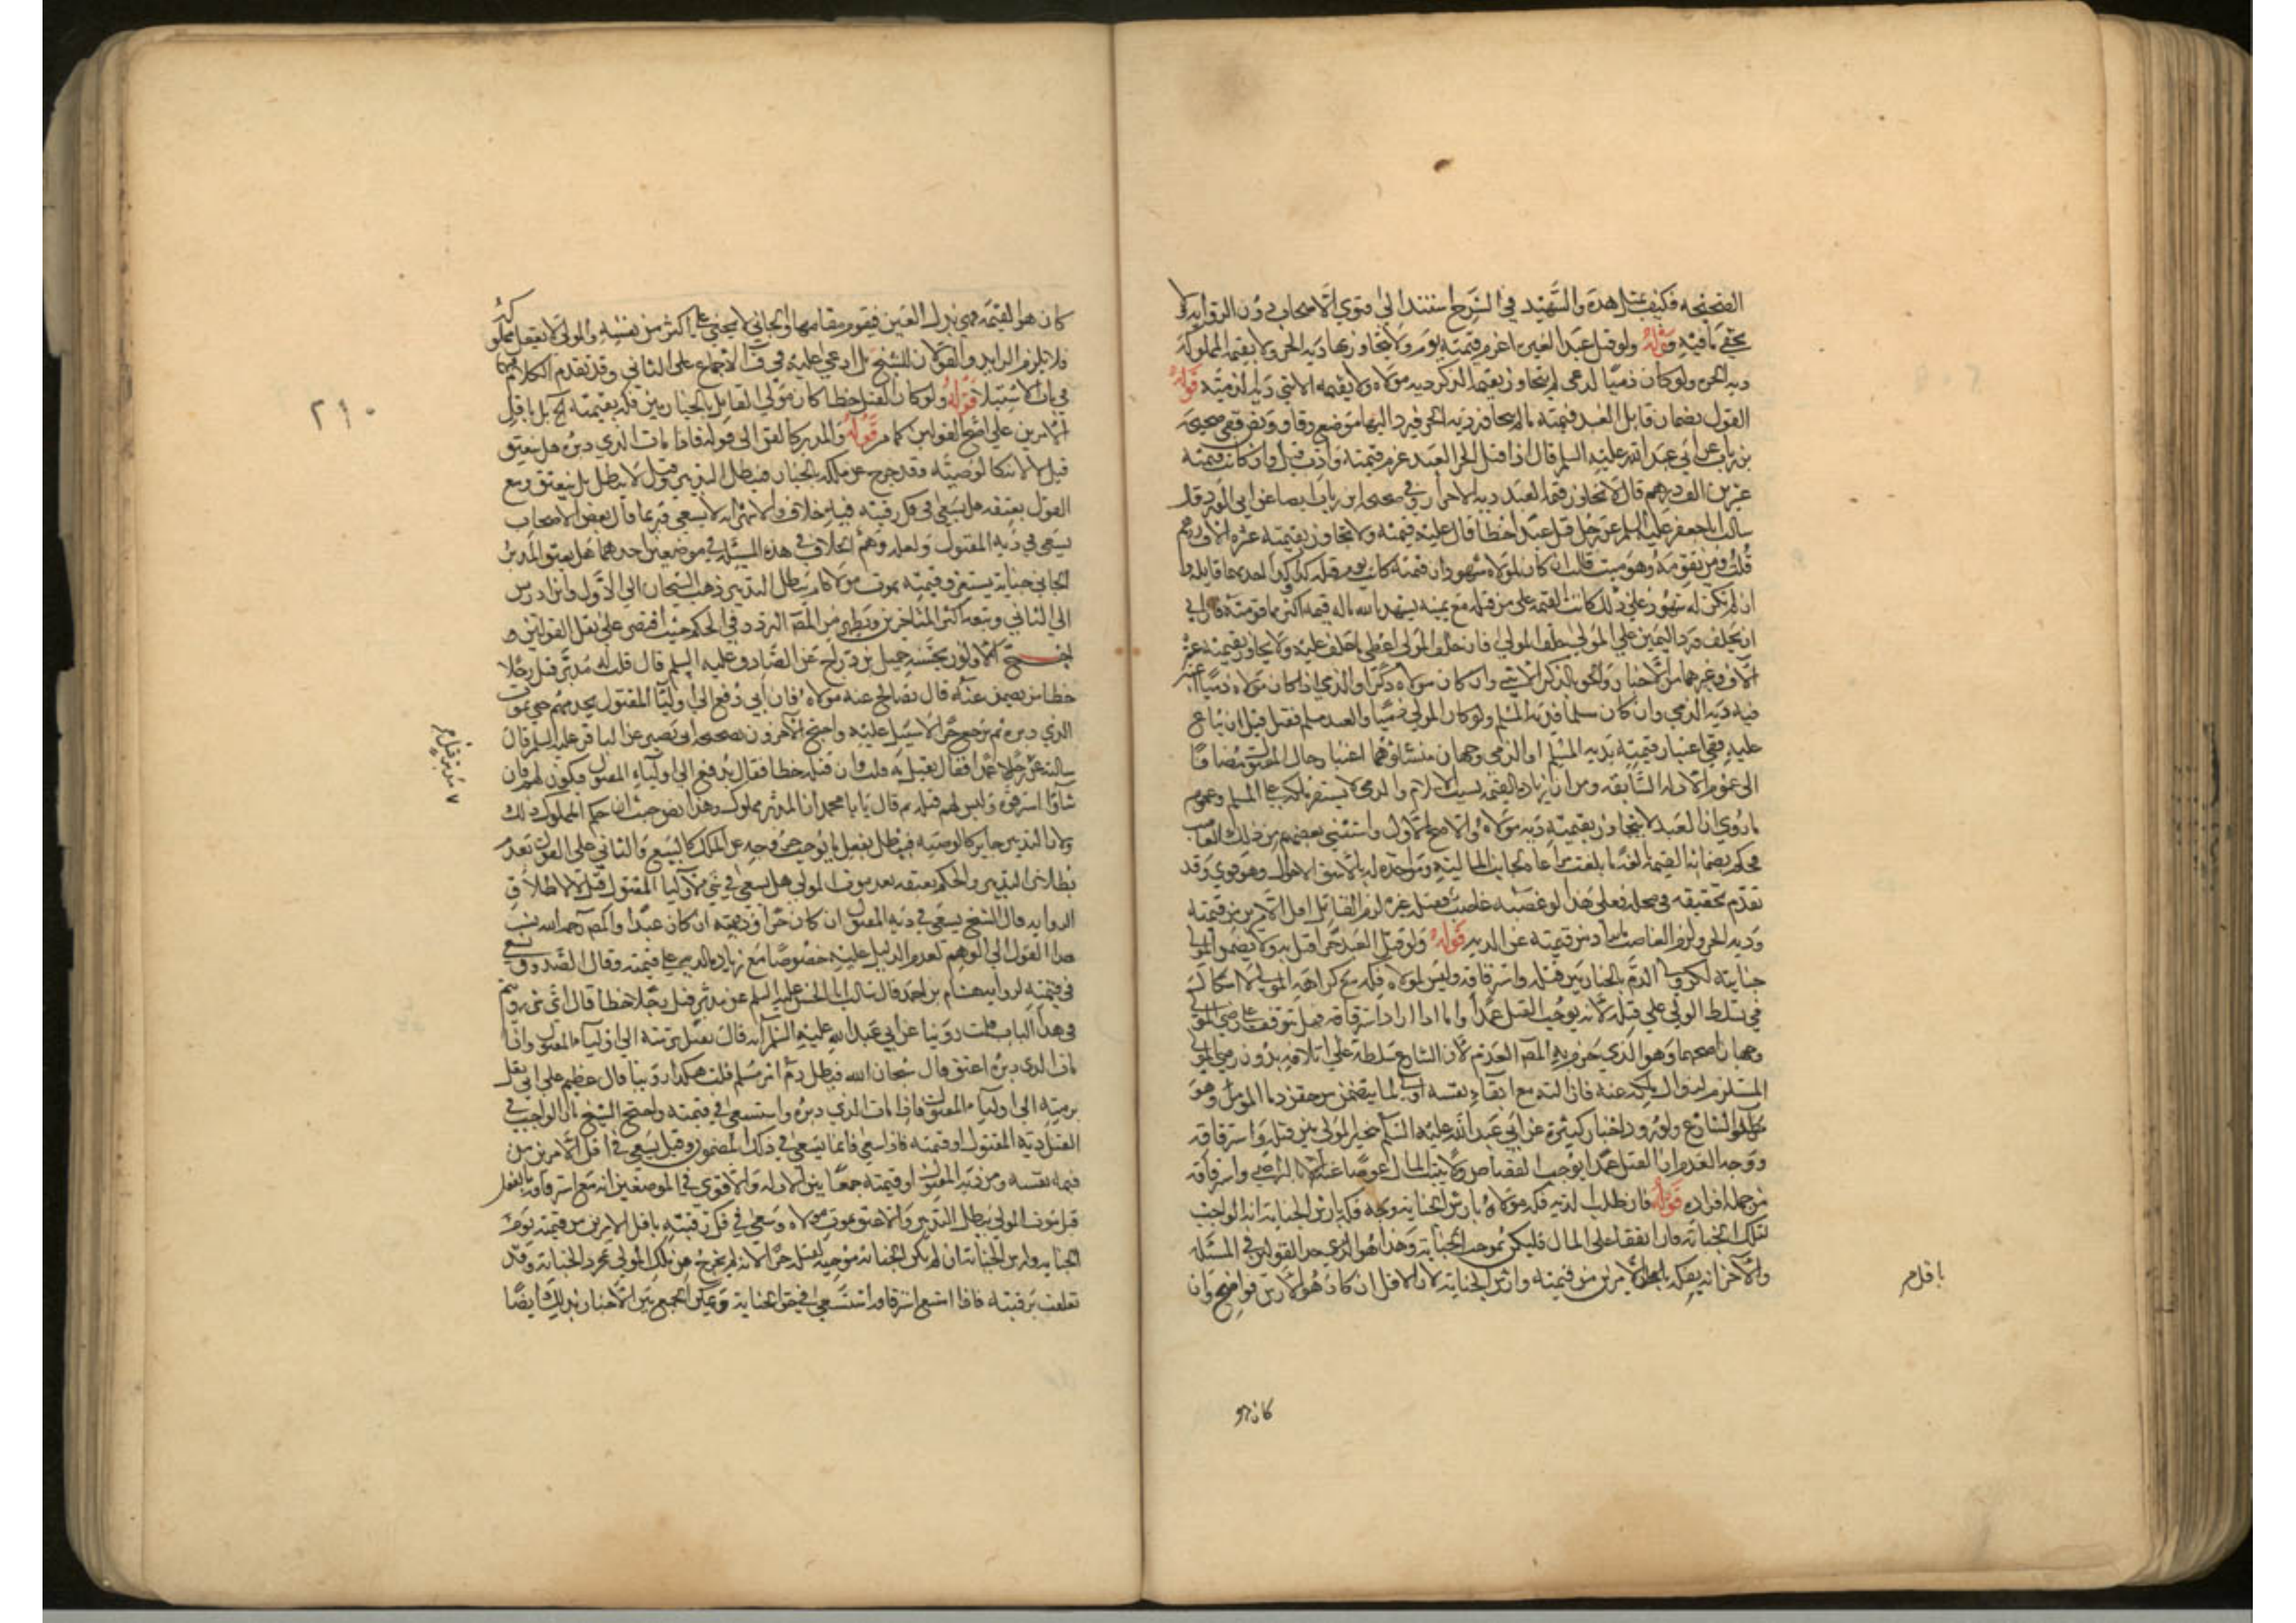 الصحيحه فكيف بمثل هذه والشهيد في الشرح استند الى فتوي الاصحاب دون الروايه ولا
يخفي ما فيه قوله ولو قتل عبدا لغيره اغرم قيمته يوم ولا يتجاوز بها ديه الحر ولا بقيمه المملوكه
ديه الحره ولو كان ذميا لذمي لم يتجاوز بقيمه الذكر ديه مولاه ولا بقيمه الانثي ديه الذميه قوله
القول بضمان قاتل العبد قيمته ما لم يتجاوز ديه الحر فيرد اليها موضع وفاق وبه صحيحه
بن رياب عن ابي عبد الله عليه السلم قال اذا قتل الحر العبد غرم قيمته وادب قيل وان كانت قيمته
عشرين الف درهم قال لا يتجاوز قيمه العبد ديه الاحرار وفي صحيحه ابن رياب ايضا عن ابي الورد قال
سالت ابا جعفر عليه السلم عن رجل قتل عبدا خطأ قال عليه قيمته ولا يتجاوز بقيمته عشره الاف درهم
قلت ومن يقومه وهو ميت قال ان كان لمولاه شهود ان قيمته كانت يوم قتله كذا وكذا اخذ بها قاتله وا
ان لم يكن له شهود علي ذلك كانت القيمه علي من قتله مع يمينه يشهد بالله ما له قيمه اكثر مما قومته فان ابي
ان يحلف ورد اليمين علي المولي حلف المولي فان حلف المولي اعطي ما حلف عليه ولا يجاوز بقيمته عشره
الاف وغيرهما من الاخبار
فيه ديه الذمي وان كان مسلما فديه المسلم ولو كان المولي ذميا والعبد مسلم فقتل قبل ان يباع
عليه ففي اعتبار قيمته بديه المسلم او الذمي وجهان منشاوهما اعتبار حال المقتول مضافا
الى عموم الادله السابقه ومن ان زياده القيمه بسبب الاسلام والذمي لا يستقر ملكه علي المسلم وعموم
ما روي ان العبد لا يتجاوز بقيمته ديه مولاه والاصح الاول واستثني بعضهم من ذلك الغاصب
فحكم بضمانه القيمه
تقدم تحقيقه في محله فعلي هذا لو غصبه غاصب فقتله غيره لزم القاتل اقل الامرين من قيمته
وديه الحر ولزم الغاصب ما زاد من قيمته عن الديه قوله ولو قتل العبد حرا قتل به ولا يضمن المولي
جنايته لكن ولي الدم بالخيار بين قتله واسترقاقه وليس لمولاه فكه مع كراهه الولي لا اشكال
في تسلط الولي علي قتله لانه يوجب القتل عمدا واما اذا اراد استرقاقه فهل يتوقف علي رضي المولي
وجهان اصحهما وهو الذي جزم به المص العدم لان الشارع سلطه علي اتلافه بدون رضي المولي
المستلزم لزوال ملكه عنه فازالته مع ابقاء نفسه اولي لما يتضمن من حقن دم المومن وهو
مطلوب الشارع ولورود اخبار كثيره عن ابي عبد الله عليه السلم بتخيير الولي بين قتله واسترقاقه
ووجه العدم ان القتل عمدا يوجب القصاص ولا يثبت المال عوضا عنه الا بالتراضي واسترقاقه
من جمله افراده قوله فان طلب الديه فكه مولاه بارش الجنايه وجه فكه بارش الجنايه انه الواجب
لتلك الجنايه فان اتفقا علي المال فليكن بموجب الجنايه وهذا هو احد القولين في المسئله
والاخر انه يفكه باقل الامرين من قيمته وارش الجنايه لان الاقل ان كان هو الارش فواضح وان
باقل م
كان هو
٢١٠
كان هو القيمه فهي بدل العين فيقوم مقامها والجاني لا يجني علي اكثر من نفسه والمولي لا يعقل مملوكه
فلا يلزم الزايد والقولان للشيخ بل ادعي عليه في ف الاجماع علي الثاني وقد تقدم الكلام فيها
في باب الاستيلاد قوله ولو كان القتل خطا كان مولي القاتل بالخيار بين فكه بقيمته بل باقل
الامرين علي اصح القولين كما مر قوله والمدبر كالقن الى قوله فاذا مات الذي دبره هل ينعتق
قيل لا لانها كالوصيه وقد خرج عن ملكه بالجنايه فيبطل التدبير وقيل لا يبطل بل ينعتق ومع
القول بعتقه هل يسعي في فك رقبته فيه خلاف والاشهر انه لا يسعي وربما قال بعض الاصحاب
يسعي في ديه المقتول ولعله وهم الخلاف في هذه المسئله في موضعين احدهما هل يعتق المدبر
الجاني جنايه يستغرق قيمته بموت مولاه ام يبطل التدبير ذهب الشيخان الي الاول وابن ادريس
الي الثاني وتبعه اكثر المتاخرين ويظهر من المص التردد في الحكم حيث اقتصر علي نقل القولين و
احتج الاولون بحسنه جميل بن دراج عن الصادق عليه السلم قال قلت له مدبر قتل رجلا
خطا من يضمن عنه قال يصالح عنه مولاه فان ابي دفع الي اوليا المقتول يخدمهم حتي يموت
الذي دبره ثم يرجع حرا لا سبيل عليه واحتج الاخرون بصحيحه ابي بصير عن الباقر عليه السلم قال
سالته عن رجلا عمدا فقال يقتل به قلت وان قتله خطا فقال يدفع الي اولياء المقتول فيكون لهم فان
شاوا استرقوه وليس لهم قتله ثم قال يا با محمد ان المدبر مملوك وهذا نص حيث ان حكم المملوك ذلك
ولان التدبير جايز كالوصيه فيبطل بفعل ما يوجب خروجه عن الملك كالبيع والثاني علي القول بعدم
بطلان التدبير والحكم بعتقه بعد موت المولي هل يسعي في شي لاوليا المقتول قيل لا لاطلاق
الروايه وقال الشيخ يسعي في ديه المقتول ان كان حرا وقيمته ان كان عبدا والمص رحمه الله نسب
هذا القول الي الوهم لعدم الدليل عليه خصوصا مع زياده الديه علي قيمته وقال الصدوق يسعي
في قيمته لروايه هشام بن احمد قال سالت ابا الحسن عليه السلم عن مدبر قتل رجلا خطا قال اي شي رويتم
في هذا الباب قلت روينا عن ابي عبد الله عليه السلم انه قال يتل برمته الي اولياء المقتول واذا
مات الذي دبره اعتق قال سبحان الله فيبطل دم امرء مسلم قلت هكذا روينا قال غلطتم علي ابي يتل
برمته الي اولياء المقتول فاذا مات الذي دبره استسعي في قيمته واحتج الشيخ بان الواجب في
القتل ديه المقتول او قيمته فاذا سعي فانما يسعي في ذلك المضمون وقيل يسعي في اقل الامرين من
قيمه نفسه ومن ديه المقتول او قيمته جمعا بين الادله والاقوي في الموضعين انه مع استرقاقه بالفعل
قبل موت المولي يبطل التدبير والا عتق بموت مولاه وسعي في فك رقبته باقل الامرين من قيمته يوم
الجنايه وارش الجنايه ان لم يكن الجنايه موجبه لقتله حرا لانه لم يخرج عن ملك المولي بمجرد الجنايه وقد
تعلقت برقبته فاذا امتنع استرقاقه استسعي في حق الجنايه ويمكن الجمع بين الاخبار بذلك ايضا
مدبر قتل م